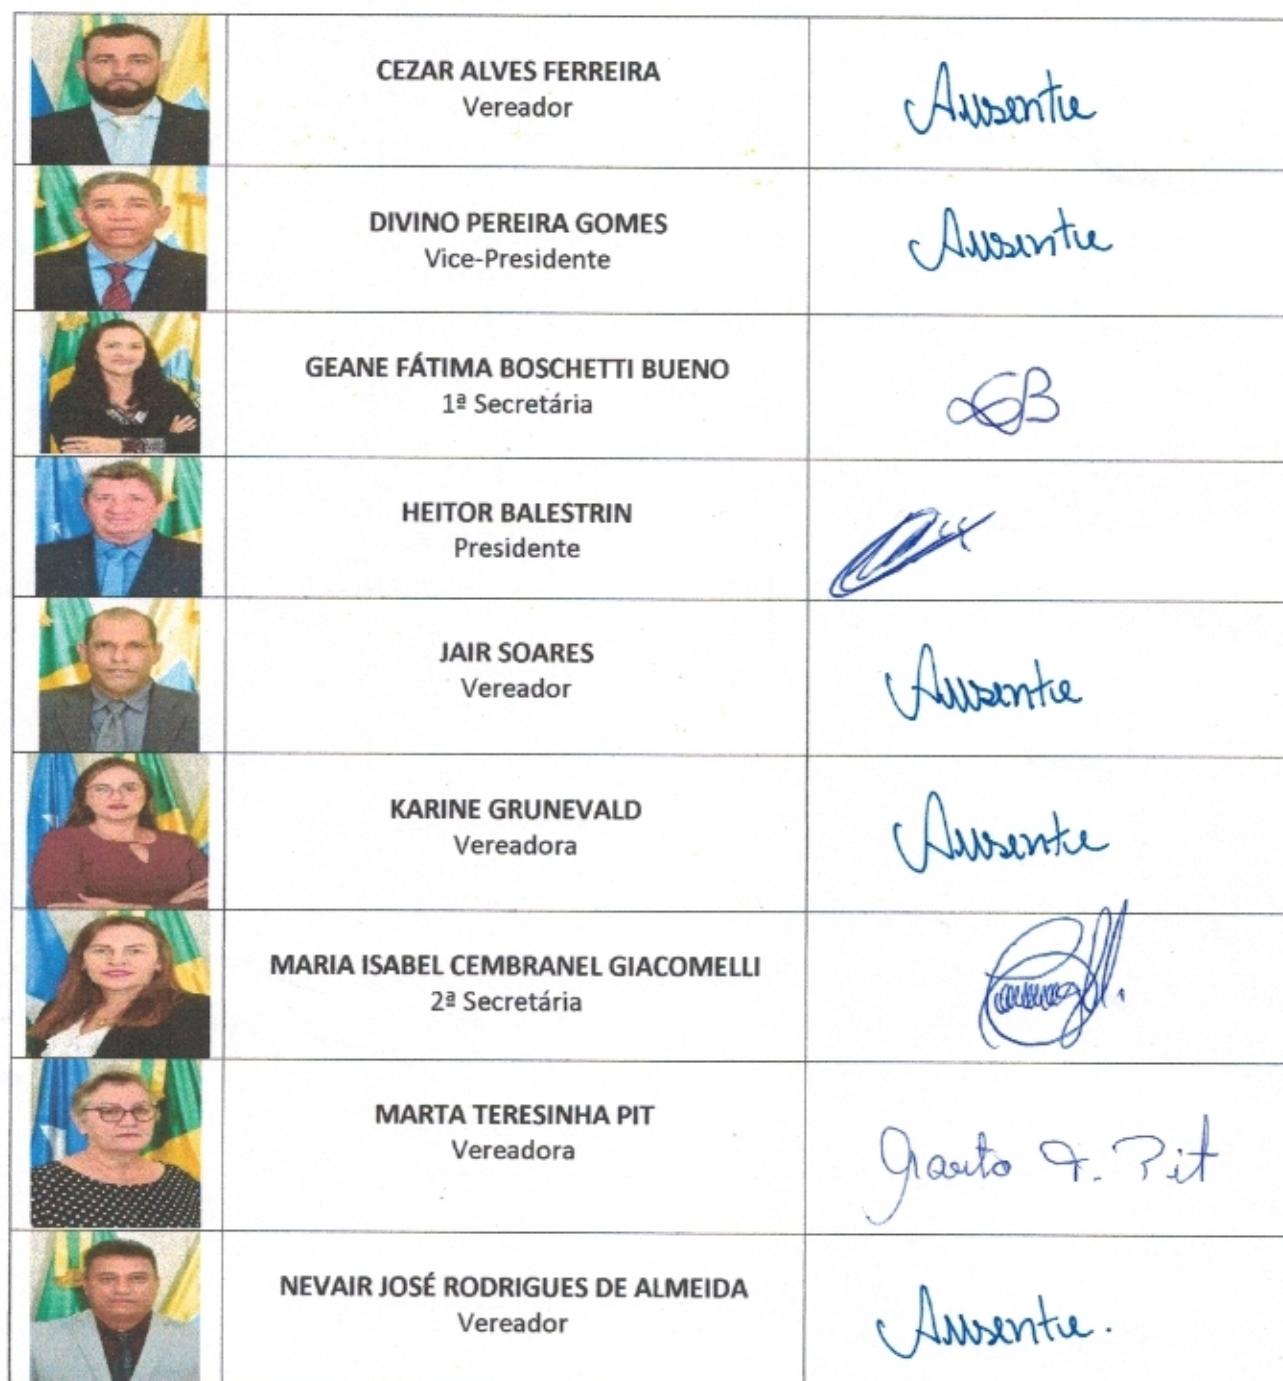 CEZAR ALVES FERREIRA
Vereador
Ausente
DIVINO PEREIRA GOMES
Vice-Presidente
Ausente
GEANE FÁTIMA BOSCHETTI BUENO
1ª Secretária
HEITOR BALESTRIN
Presidente
JAIR SOARES
Vereador
Ausente
KARINE GRUNEVALD
Vereadora
Ausente
MARIA ISABEL CEMBRANEL GIACOMELLI
2ª Secretária
MARTA TERESINHA PIT
Vereadora
Marta T. Pit
NEVAIR JOSÉ RODRIGUES DE ALMEIDA
Vereador
Ausente.